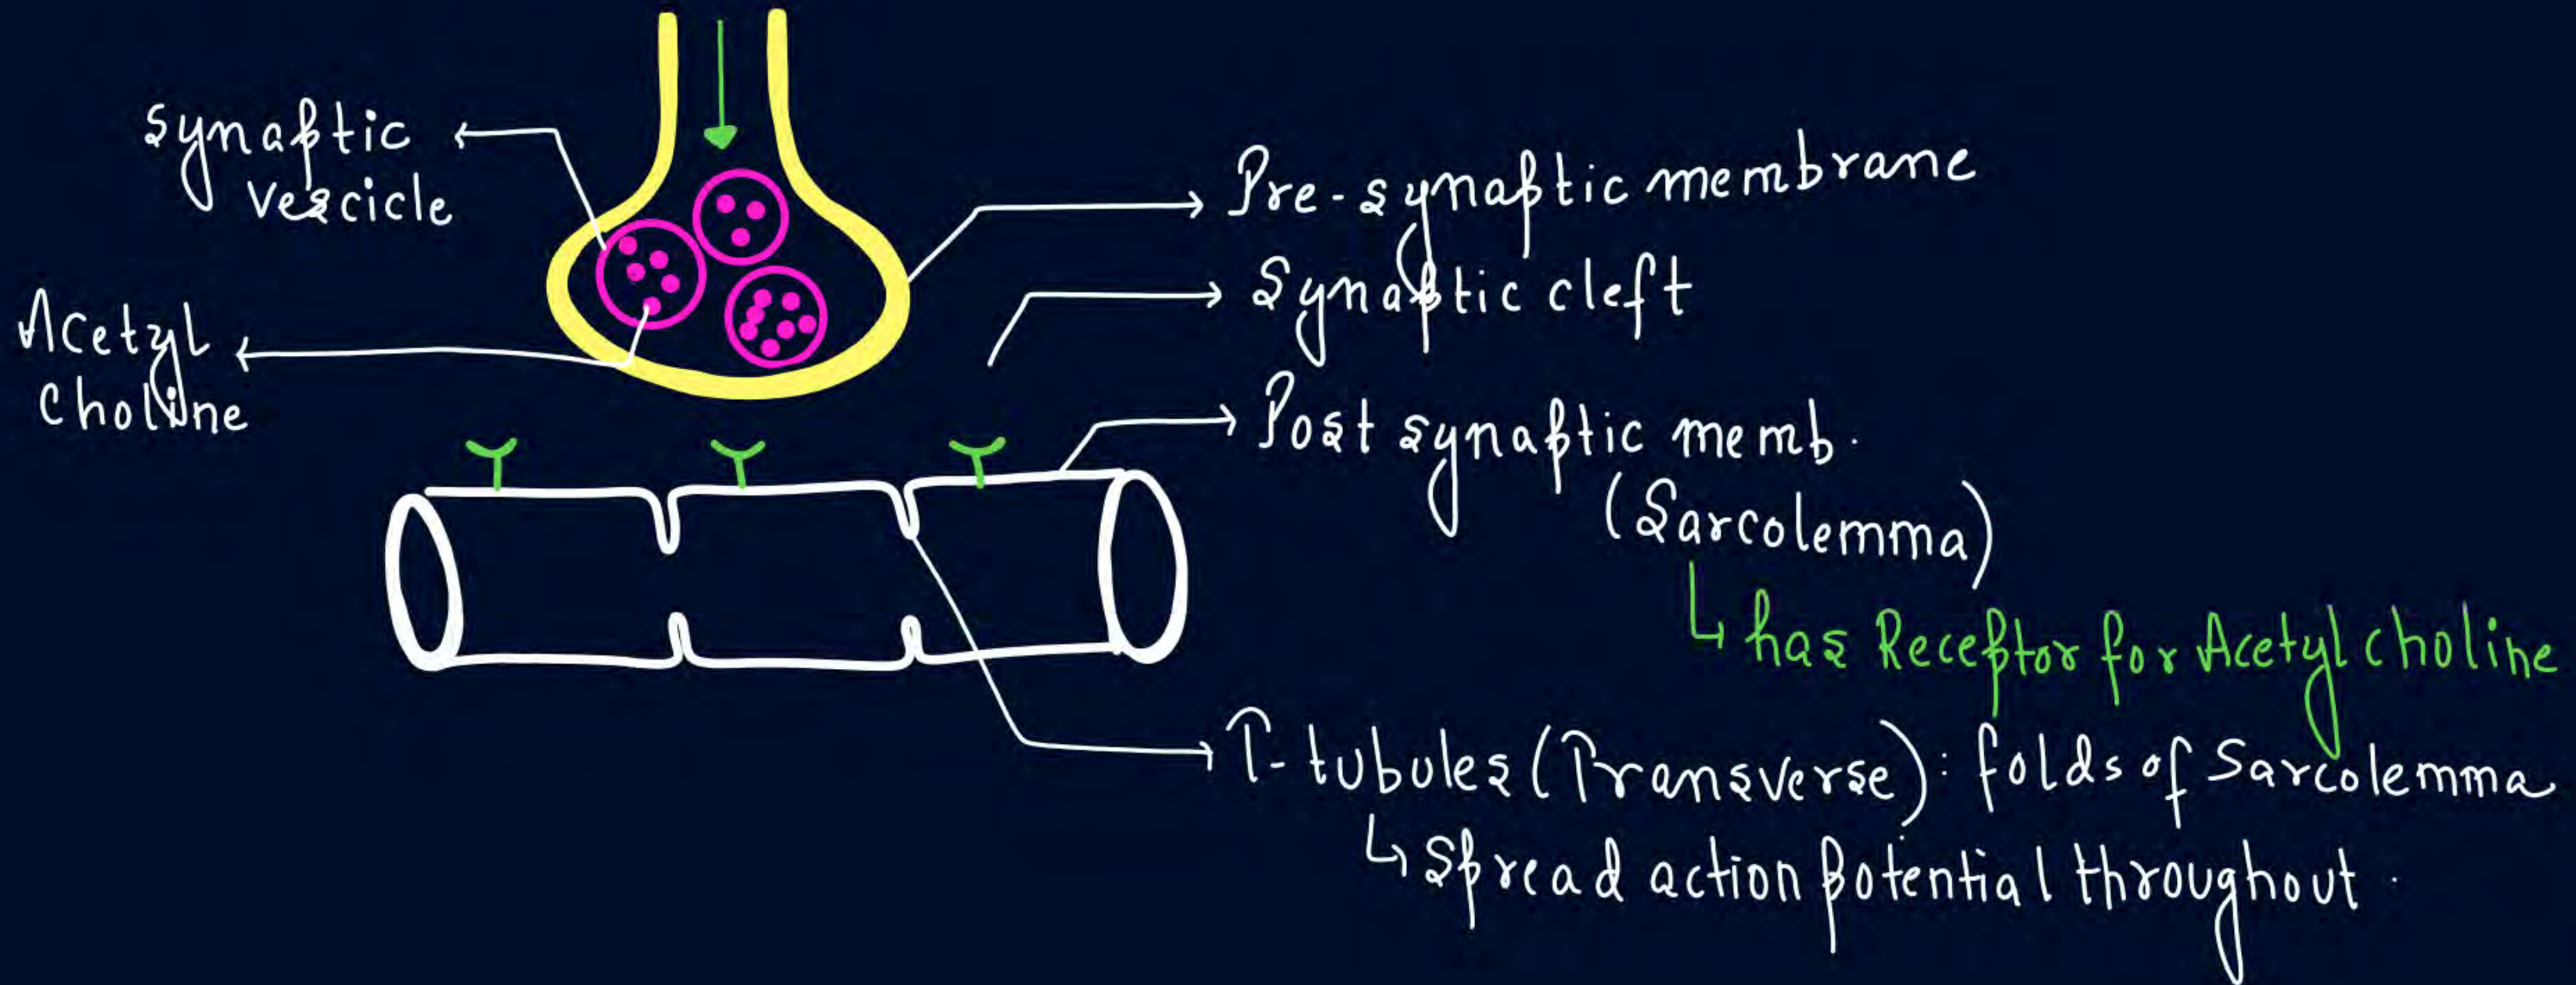 Synaptic
vescicle
Acetyl
choline
Pre-synaptic membrane
Synaptic cleft
Post synaptic memb.
(Sarcolemma)
↳ has Receptor for Acetyl choline
T-tubules (Transverse): folds of Sarcolemma
↳ Spread action potential throughout.